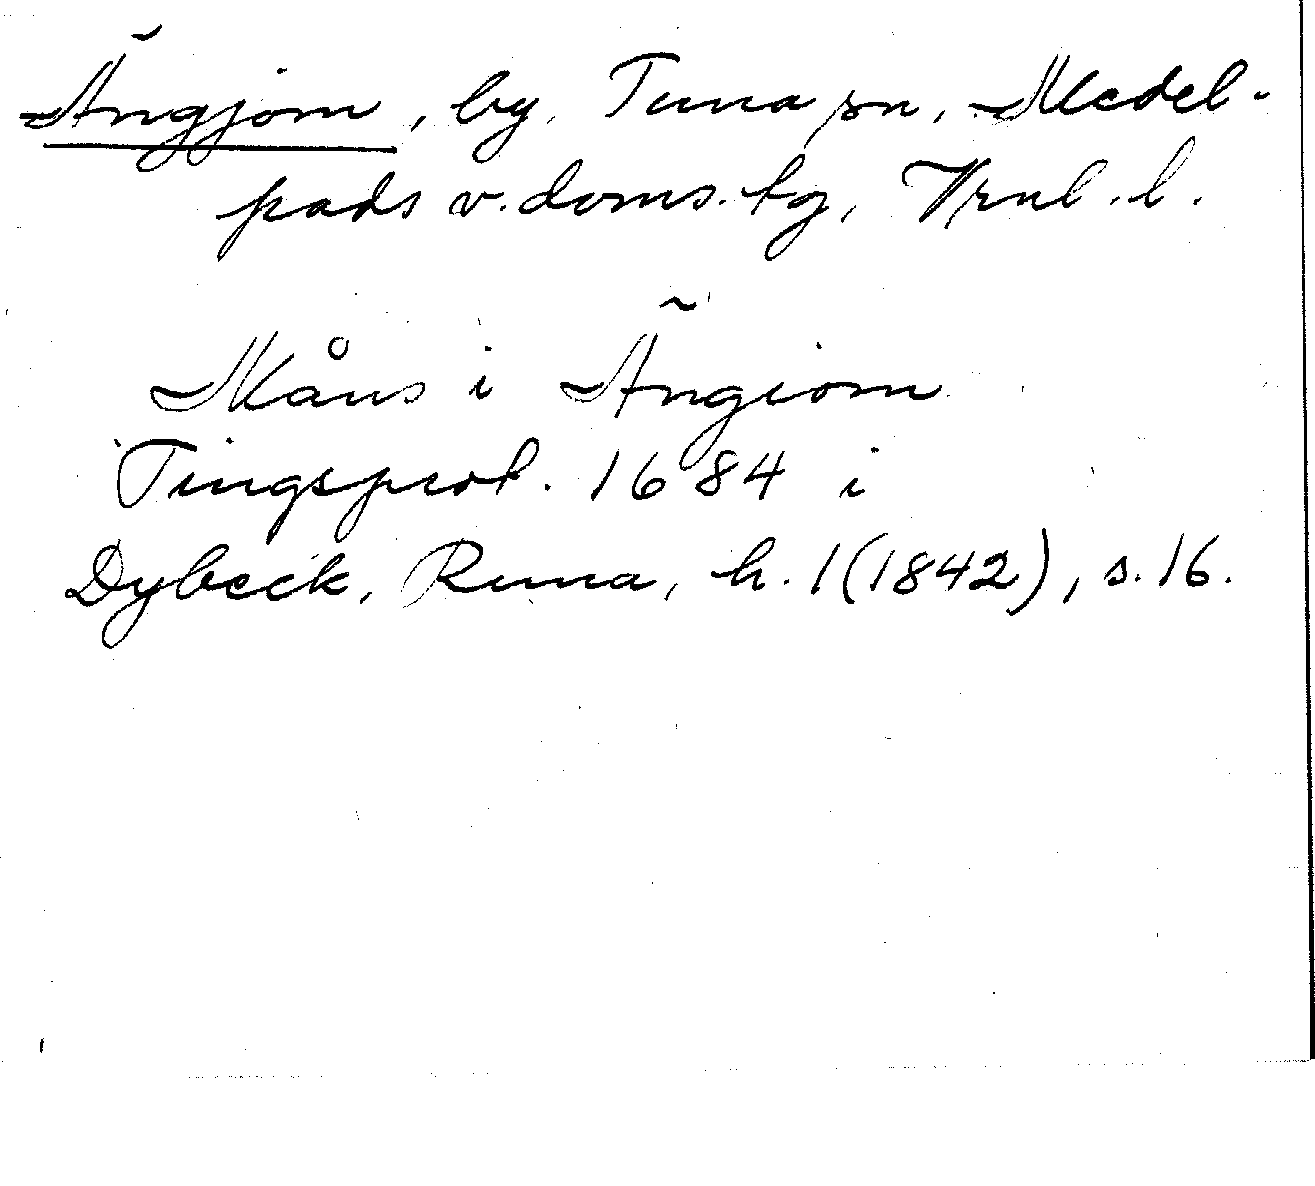 Ängjom, by, Tuna sn, Medel-
pads v. doms. tg, Vrnl. l.
Måns i Ängiom
Tingsprot. 1684 i
Dybeck, Runa, h. 1 (1842), s. 16.